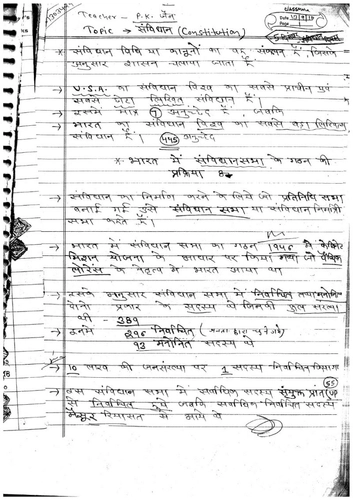 Teacher - P.K. जैन
classmate
Date
Page
Topic → संविधान (Constitution)
* संविधान विधि या कानूनों का वह संकलन है, जिसके
अनुसार शासन चलाया जाता है
→ U.S.A. का संविधान विश्व का सबसे प्राचीन एवं
सबसे छोटा लिखित संविधान है।
→ इसमें मात्र 7 अनुच्छेद है, जबकि
→ भारत का संविधान विश्व का सबसे बड़ा लिखित
संविधान है। 445 अनुच्छेद
* भारत में संविधानसभा के गठन की
प्रक्रिया :-
→ संविधान का निर्माण करने के लिये जो प्रतिनिधि सभा
बनाई गई उसे संविधान सभा या संविधान निर्मात्री
सभा कहते है।
→ भारत में संविधान सभा का गठन 1946 में कैबिनेट
मिशन योजना के आधार पर किया गया जो पैथिक
लॉरेंस के नेतृत्व में भारत आया था
→ इसके अनुसार संविधान सभा में निर्वाचित तथा मनोनीत
दोनो प्रकार के सदस्य थे जिनकी कुल संख्या
थी - 389
→ इनमें 296 निर्वाचित (जनता द्वारा चुने गये)
93 मनोनित सदस्य थे
→ 10 लाख की जनसंख्या पर 1 सदस्य निर्वाचित किया गया
→ इस संविधान सभा में सर्वाधिक सदस्य संयुक्त प्रांत (UP) 55
से निर्वाचित हुये जबकि सर्वाधिक निर्वाचित सदस्य
मैसूर रियासत से आये थे